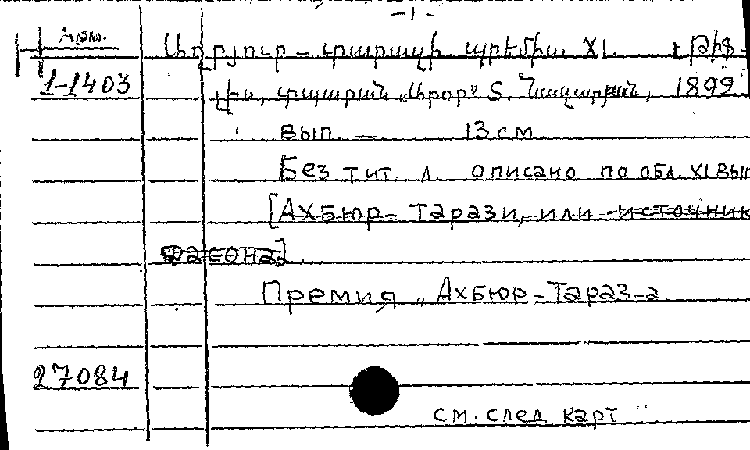 -1-
Арм.
Աղբյուր – տարազի պրեմիա XI. Թիֆ-
1-1403
լիս, տպարան „Արոր“ S. Նազարյան, 1899
вып. — 13 см
Без тит. л. описано по обл. XI вып
[Ахбюр-Тарази, или источник
Фасона].
Премия „Ахбюр-Тараз-а
27084
см. след карт